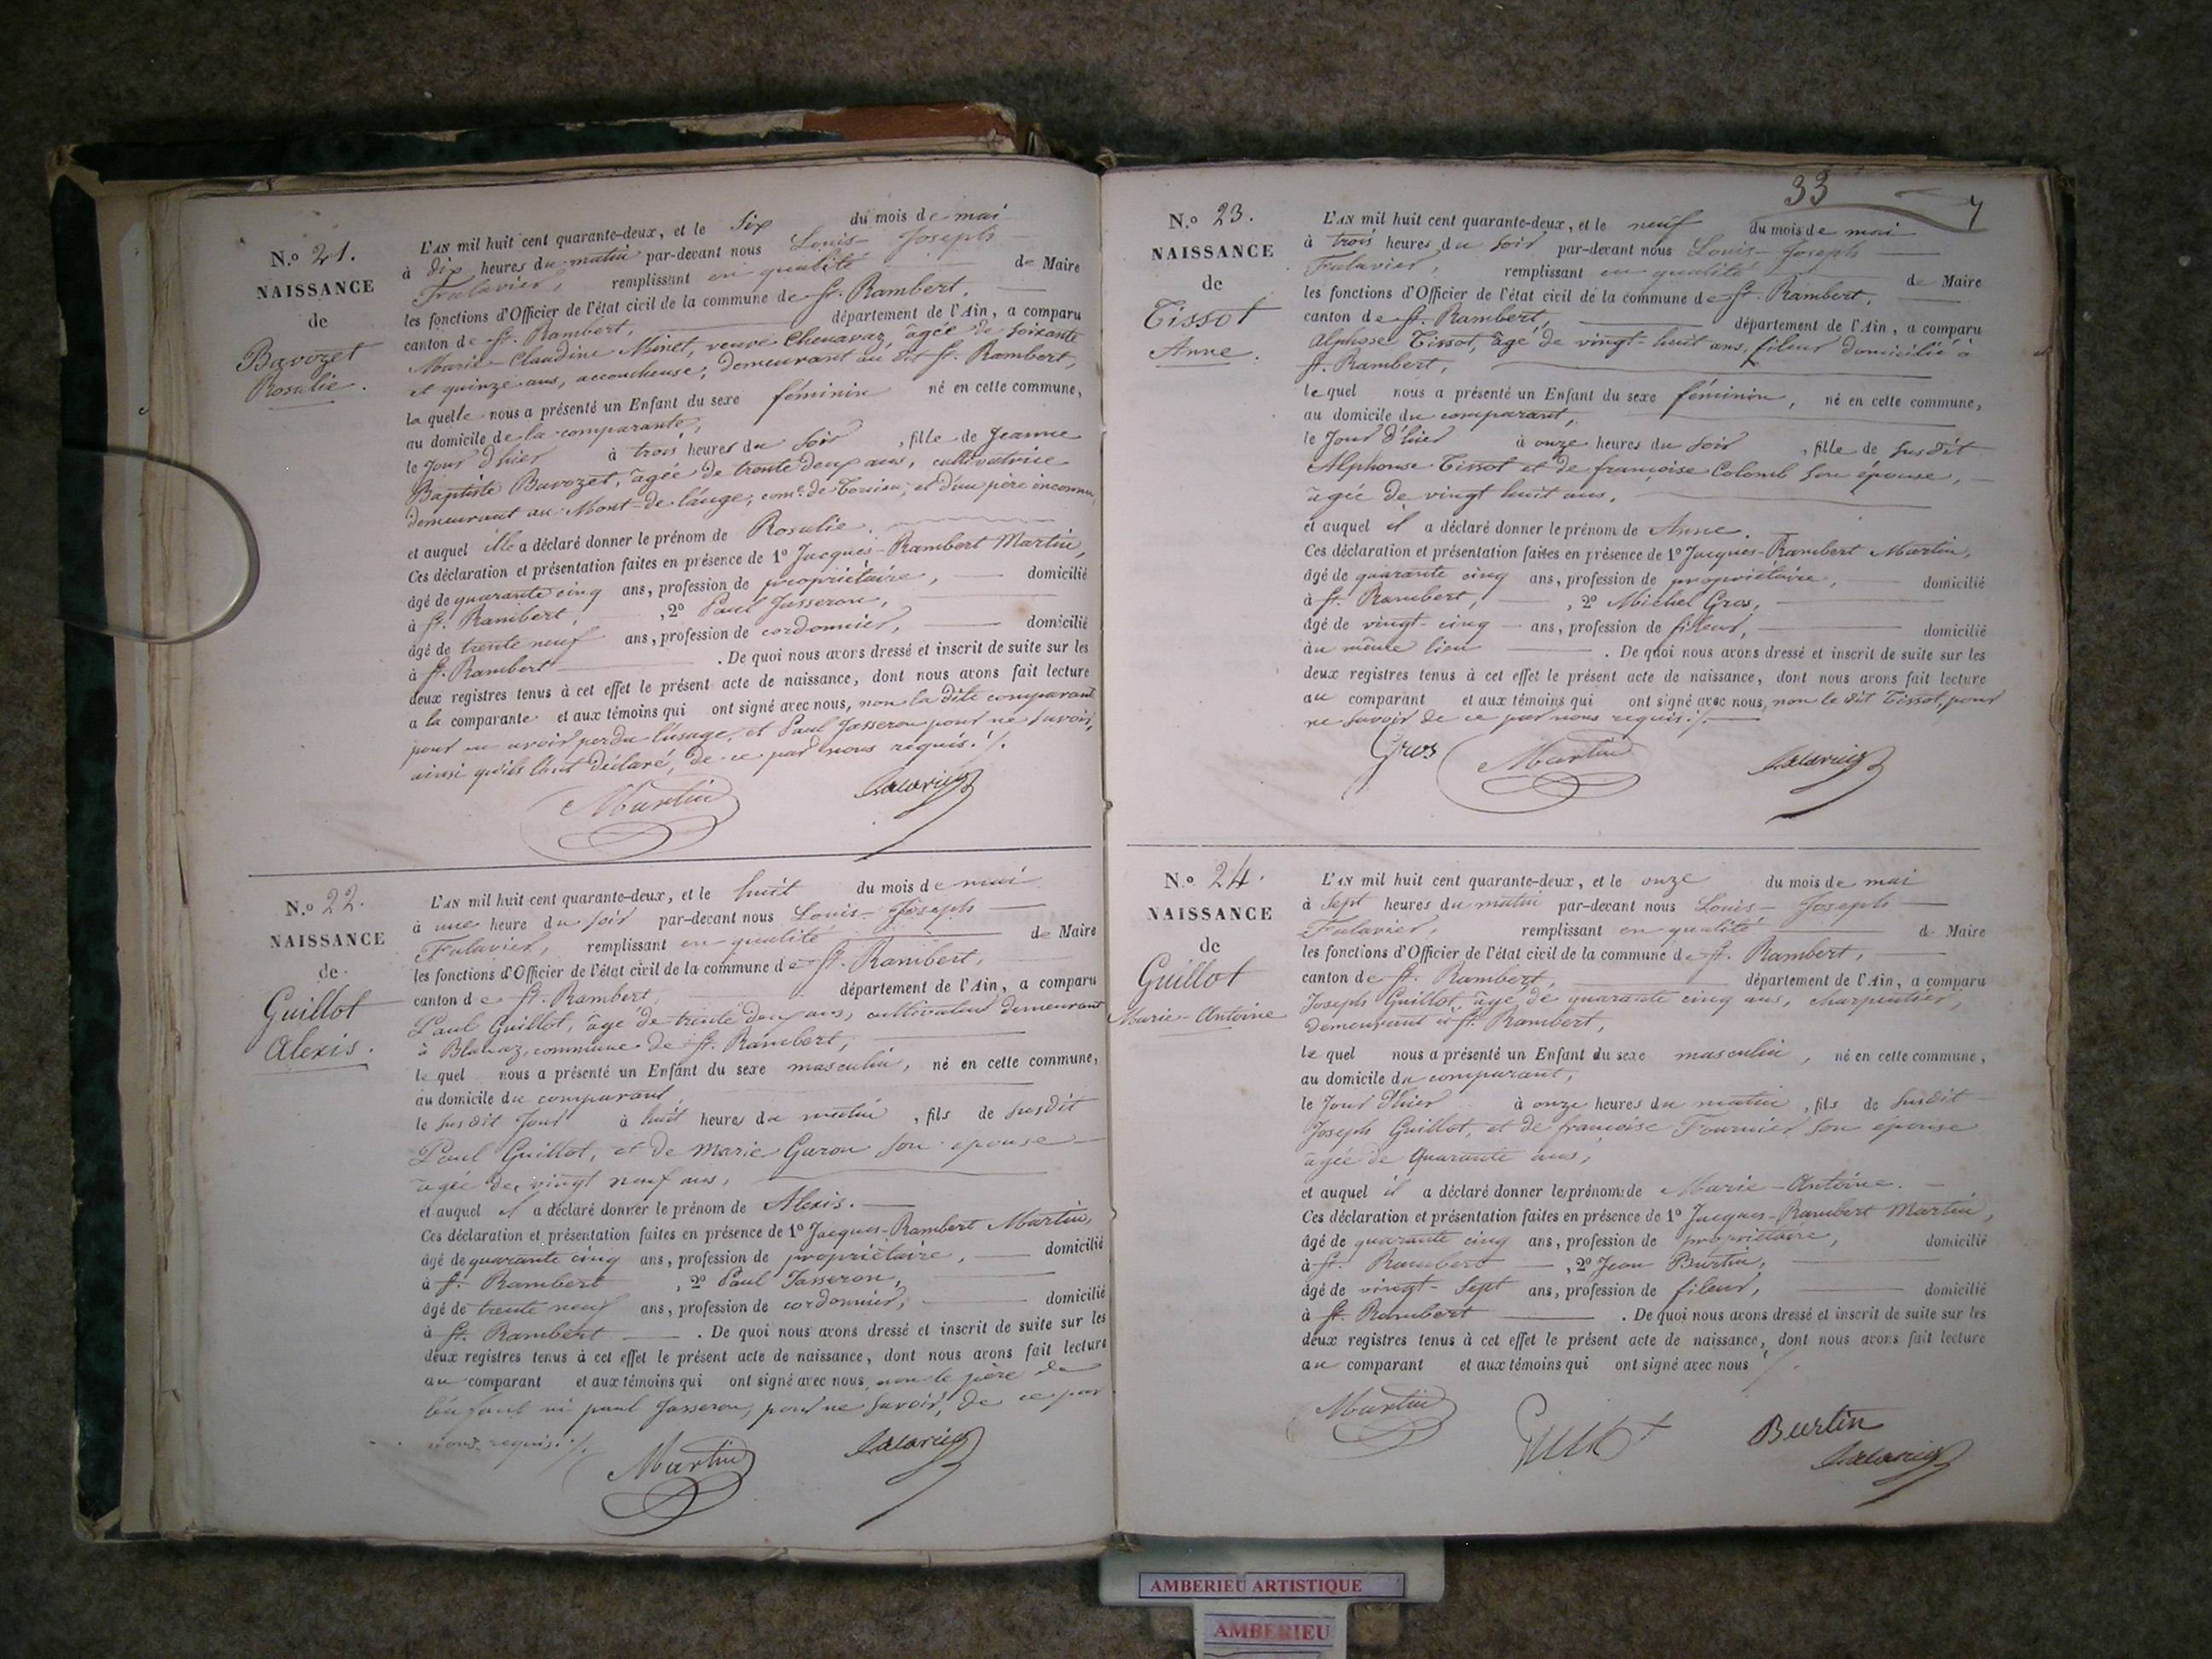 N.o 21.
NAISSANCE
de
Bavozet
Rosalie.
L'AN mil huit cent quarante-deux, et le six du mois de mai
à dix heures du matin par-devant nous Louis-Joseph
Falavier, remplissant en qualité de Maire
les fonctions d'Officier de l'état civil de la commune de St. Rambert,
canton de St. Rambert, département de l'Ain, a comparu
Marie Claudine Minet, veuve Chenavaz, âgée de soixante
et quinze ans, accoucheuse, demeurant au dit St. Rambert,
la quelle nous a présenté un Enfant du sexe féminin né en cette commune,
au domicile de la comparante,
le jour d'hier à trois heures du soir, fille de Jeanne
Baptiste Bavozet, âgée de trente deux ans, cultivatrice
demeurant au Mont-de-lange, come. de et d'un père inconnu,
et auquel elle a déclaré donner le prénom de Rosalie.
Ces déclaration et présentation faites en présence de 1o Jacques-Rambert Martin,
âgé de quarante cinq ans, profession de propriétaire, domicilié
à St. Rambert, 2o Paul Jasseron,
âgé de trente neuf ans, profession de cordonnier, domicilié
à St. Rambert. De quoi nous avons dressé et inscrit de suite sur les
deux registres tenus à cet effet le présent acte de naissance, dont nous avons fait lecture
a la comparante et aux témoins qui ont signé avec nous, non la dite comparant
pour en avoir perdu l'usage, et Paul Jasseron pour ne savoir,
ainsi qu'ils l'ont déclaré, de ce par nous requis ./.
Martin Falavier
N.o 22.
NAISSANCE
de
Guillot
Alexis.
L'AN mil huit cent quarante-deux, et le huit du mois de mai
à une heure du soir par-devant nous Louis-Joseph
Falavier, remplissant en qualité de Maire
les fonctions d'Officier de l'état civil de la commune de St. Rambert,
canton de St. Rambert, département de l'Ain, a comparu
Paul Guillot, âgé de trente deux ans, cultivateur demeurant
à Blanaz, commune de St. Rambert,
le quel nous a présenté un Enfant du sexe masculin, né en cette commune,
au domicile du comparant,
le susdit jour à huit heures du matin, fils de susdit
Paul Guillot, et de Marie Garon son epouse
agée de vingt neuf ans,
et auquel il a déclaré donner le prénom de Alexis.
Ces déclaration et présentation faites en présence de 1o Jacques-Rambert Martin,
âgé de quarante cinq ans, profession de propriétaire, domicilié
à St. Rambert, 2o Paul Jasseron,
âgé de trente neuf ans, profession de cordonnier, domicilié
à St. Rambert. De quoi nous avons dressé et inscrit de suite sur les
deux registres tenus à cet effet le présent acte de naissance, dont nous avons fait lecture
au comparant et aux témoins qui ont signé avec nous, non le père de
l'enfant ni paul Jasseron, pour ne savoir, de ce par
nous requis ./.
Martin Falavier
33
7
N.o 23.
NAISSANCE
de
Tissot
Anne.
L'AN mil huit cent quarante-deux, et le neuf du mois de mai
à trois heures du soir par-devant nous Louis-Joseph
Falavier, remplissant en qualité de Maire
les fonctions d'Officier de l'état civil de la commune de St. Rambert,
canton de St. Rambert, département de l'Ain, a comparu
Alphose Tissot, âgé de vingt-huit ans, fileur domicilié à
St. Rambert,
le quel nous a présenté un Enfant du sexe féminin, né en cette commune,
au domicile du comparant,
le jour d'hier à onze heures du soir, fille de susdit
Alphonse Tissot et de françoise Colomb son épouse,
agée de vingt huit ans,
et auquel il a déclaré donner le prénom de Anne.
Ces déclaration et présentation faites en présence de 1o Jacques-Rambert Martin,
âgé de quarante cinq ans, profession de propriétaire, domicilié
à St. Rambert, 2o Michel Gros,
âgé de vingt-cinq ans, profession de fileur, domicilié
au même lieu. De quoi nous avons dressé et inscrit de suite sur les
deux registres tenus à cet effet le présent acte de naissance, dont nous avons fait lecture
au comparant et aux témoins qui ont signé avec nous, non le dit Tissot, pour
ne savoir de ce par nous requis ./.
Gros Martin Falavier
N.o 24.
NAISSANCE
de
Guillot
Marie-Antoine
L'AN mil huit cent quarante-deux, et le onze du mois de mai
à sept heures du matin par-devant nous Louis-Joseph
Falavier, remplissant en qualité de Maire
les fonctions d'Officier de l'état civil de la commune de St. Rambert,
canton de St. Rambert, département de l'Ain, a comparu
Joseph Guillot, âgé de quarante cinq ans, charpentier,
demeurant à St. Rambert,
le quel nous a présenté un Enfant du sexe masculin, né en cette commune,
au domicile du comparant,
le jour d'hier à onze heures du matin, fils de susdit
Joseph Guillot, et de françoise Fournier son epouse
agée de quarante ans,
et auquel il a déclaré donner les prénoms de Marie-Antoine.
Ces déclaration et présentation faites en présence de 1o Jacques-Rambert Martin,
âgé de quarante cinq ans, profession de propriétaire, domicilié
à St. Rambert, 2o Jean Burtin,
âgé de vingt-sept ans, profession de fileur, domicilié
à St. Rambert. De quoi nous avons dressé et inscrit de suite sur les
deux registres tenus à cet effet le présent acte de naissance, dont nous avons fait lecture
au comparant et aux témoins qui ont signé avec nous ./.
Martin Guillot Burtin
Falavier
AMBERIEU ARTISTIQUE
AMBERIEU